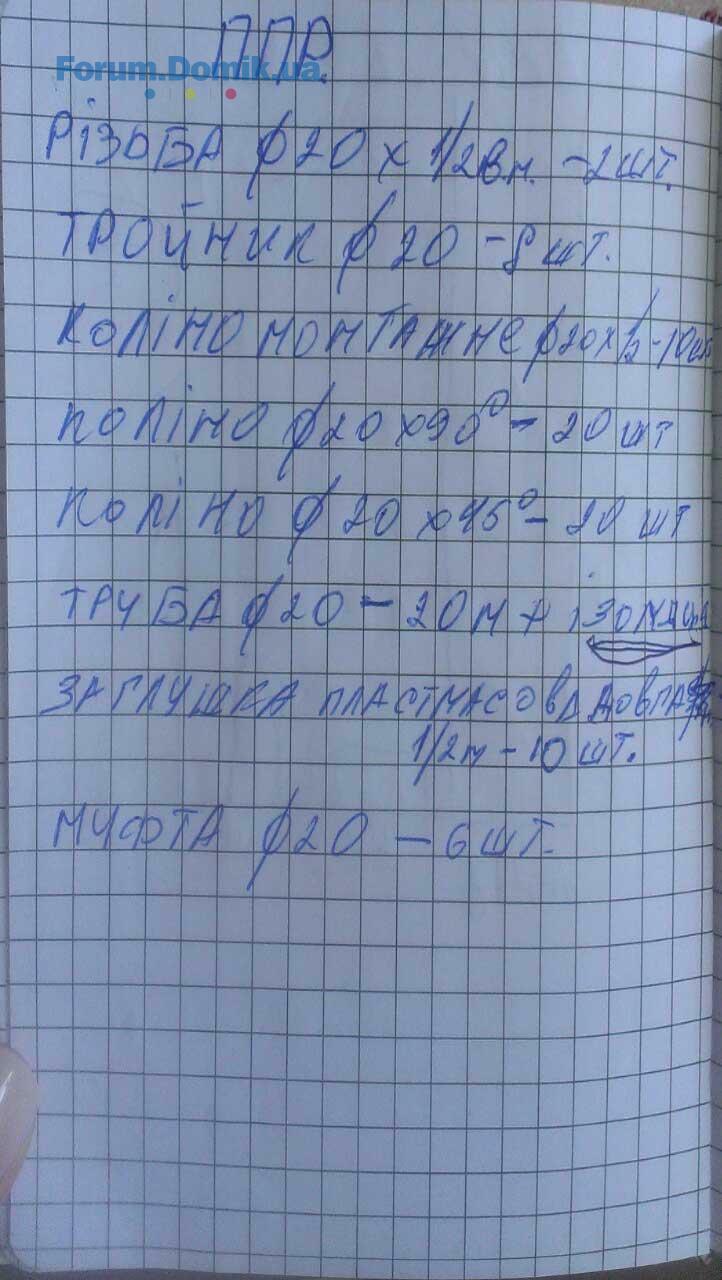 ППР
Forum.Domik.ua
РІЗЬБА ф20 х 1/2 вн. - 2 шт.
ТРОЙНИК ф20 - 8 шт.
КОЛІНО МОНТАЖНЕ ф20х1/2 - 10 шт
КОЛІНО ф20 х90° - 20 шт
КОЛІНО ф20 х45° - 20 шт
ТРУБА ф20 - 20м + ізоляція
ЗАГЛУШКА ПЛАСТМАСОВА ДОВГА
1/2 н - 10 шт.
МУФТА ф20 - 6 шт.